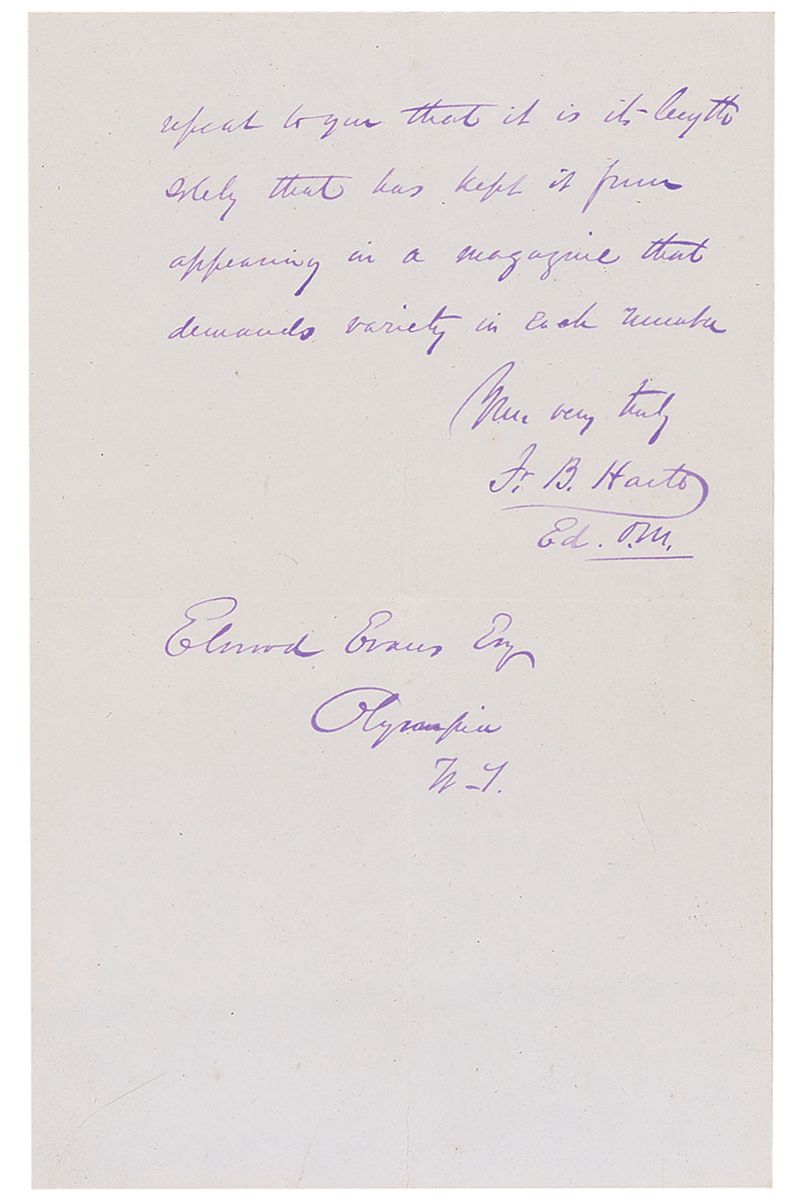 repeat to you that it is its length
solely that has kept it from
appearing in a magazine that
demands variety in each number
Yours very truly
Fr. B. Harte
Ed. O.M.
Elwood Evans Esq
Olympia
W-T.